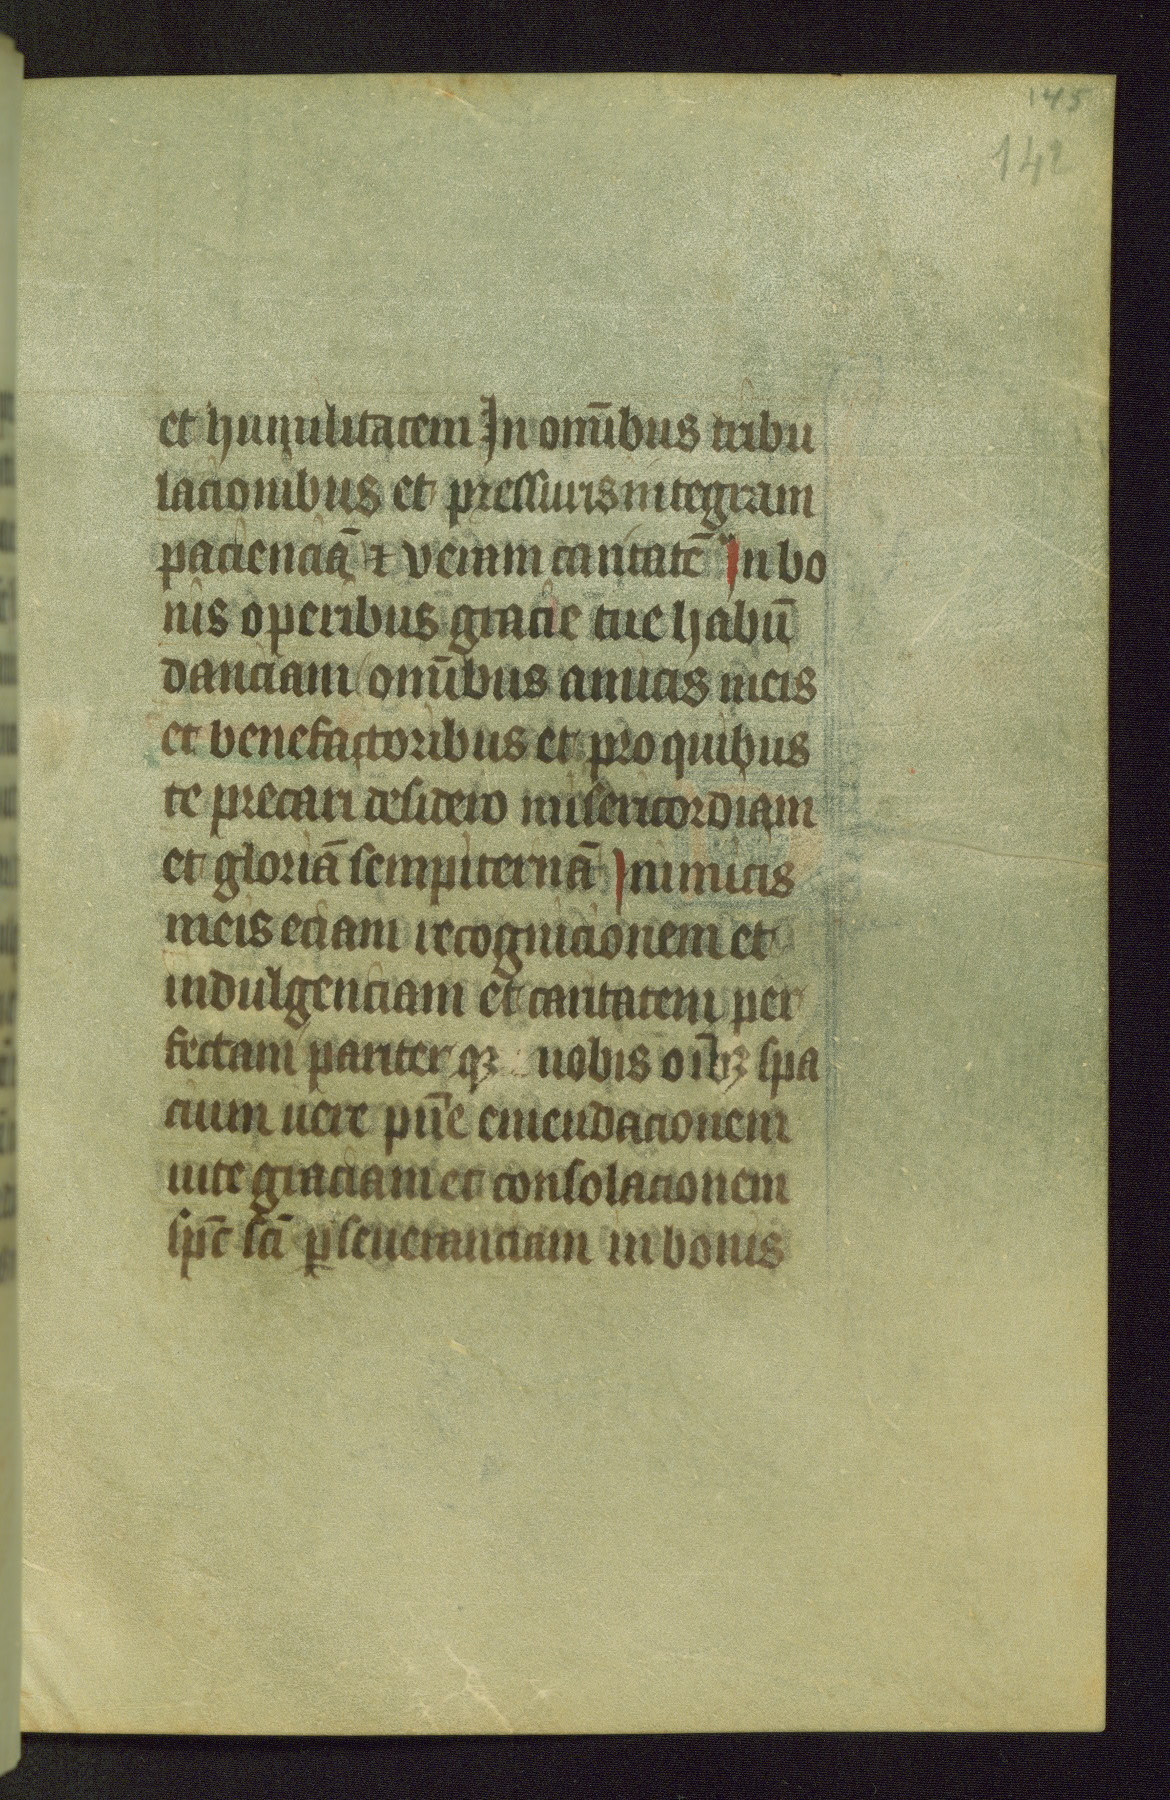 145
142
et humilitatem In om̄ibus tribu
lacionibus et pressuris integram
pacienciā ⁊ veram caritatē In bo
nis operibus gracie tue habū
danciam om̄ibus amicis meis
et benefactoribus et pro quibus
te precari desidero misericordiam
et gloriā sempiternā Inimicis
meis eciam recognicionem et
indulgenciam et caritatem per
fectam pariter qꝫ uobis oı̄bꝫ spa
cium uere pn̄e emendacionem
uite graciam et consolacionem
sp̄c sc̄i ꝑseueranciam in bonis